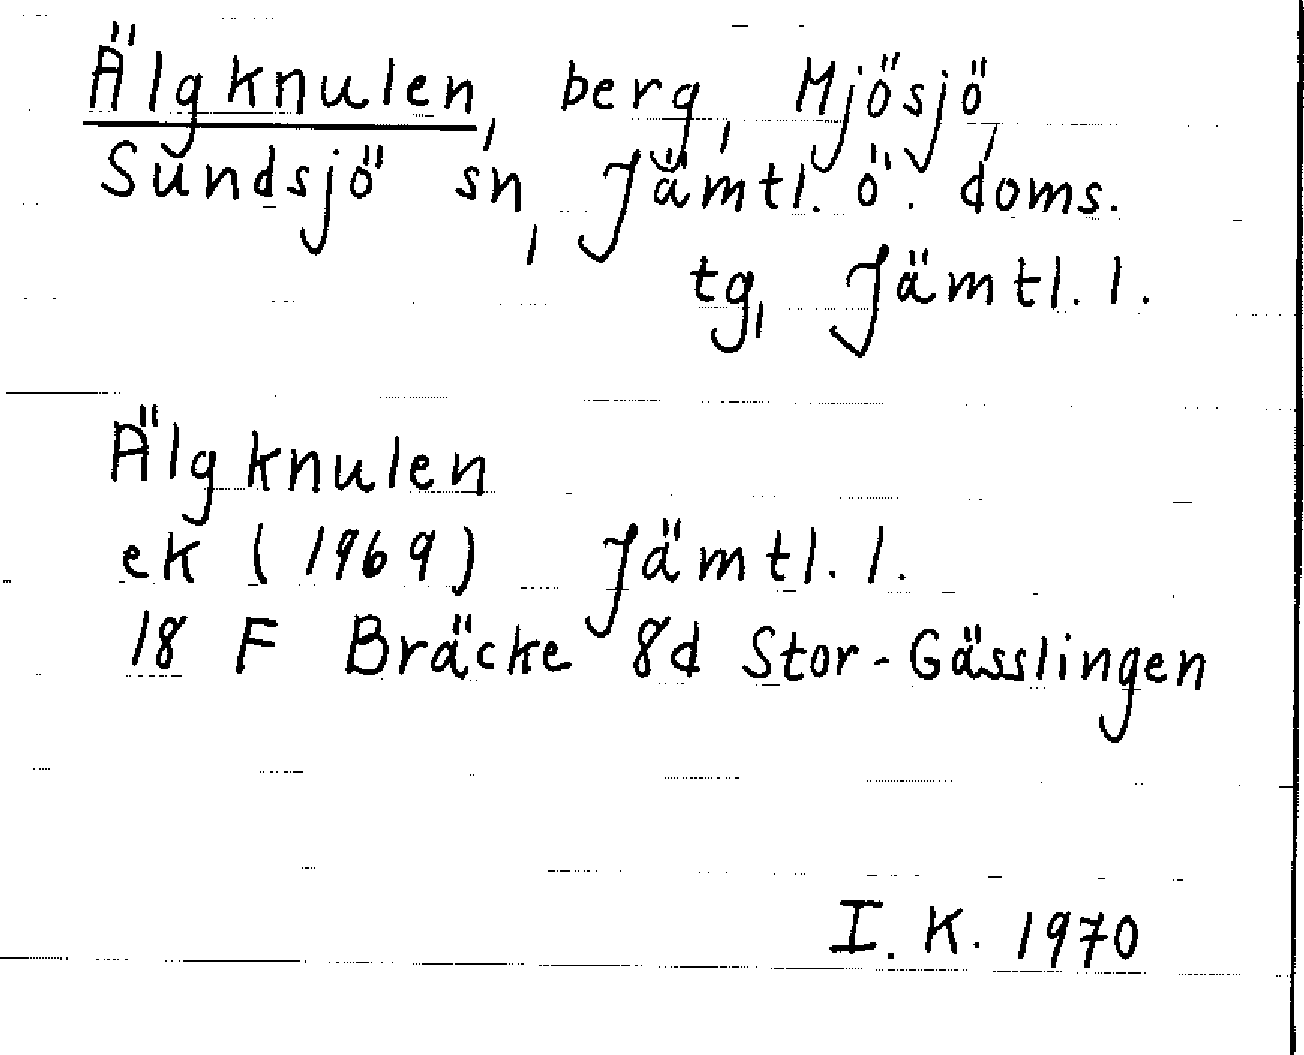 Älgknulen, berg, Mjösjö,
Sundsjö sn, Jämtl. ö. doms.
tg, Jämtl. l.
Älgknulen
ek (1969) Jämtl. l.
18 F Bräcke 8d Stor-Gässlingen
I. K. 1970